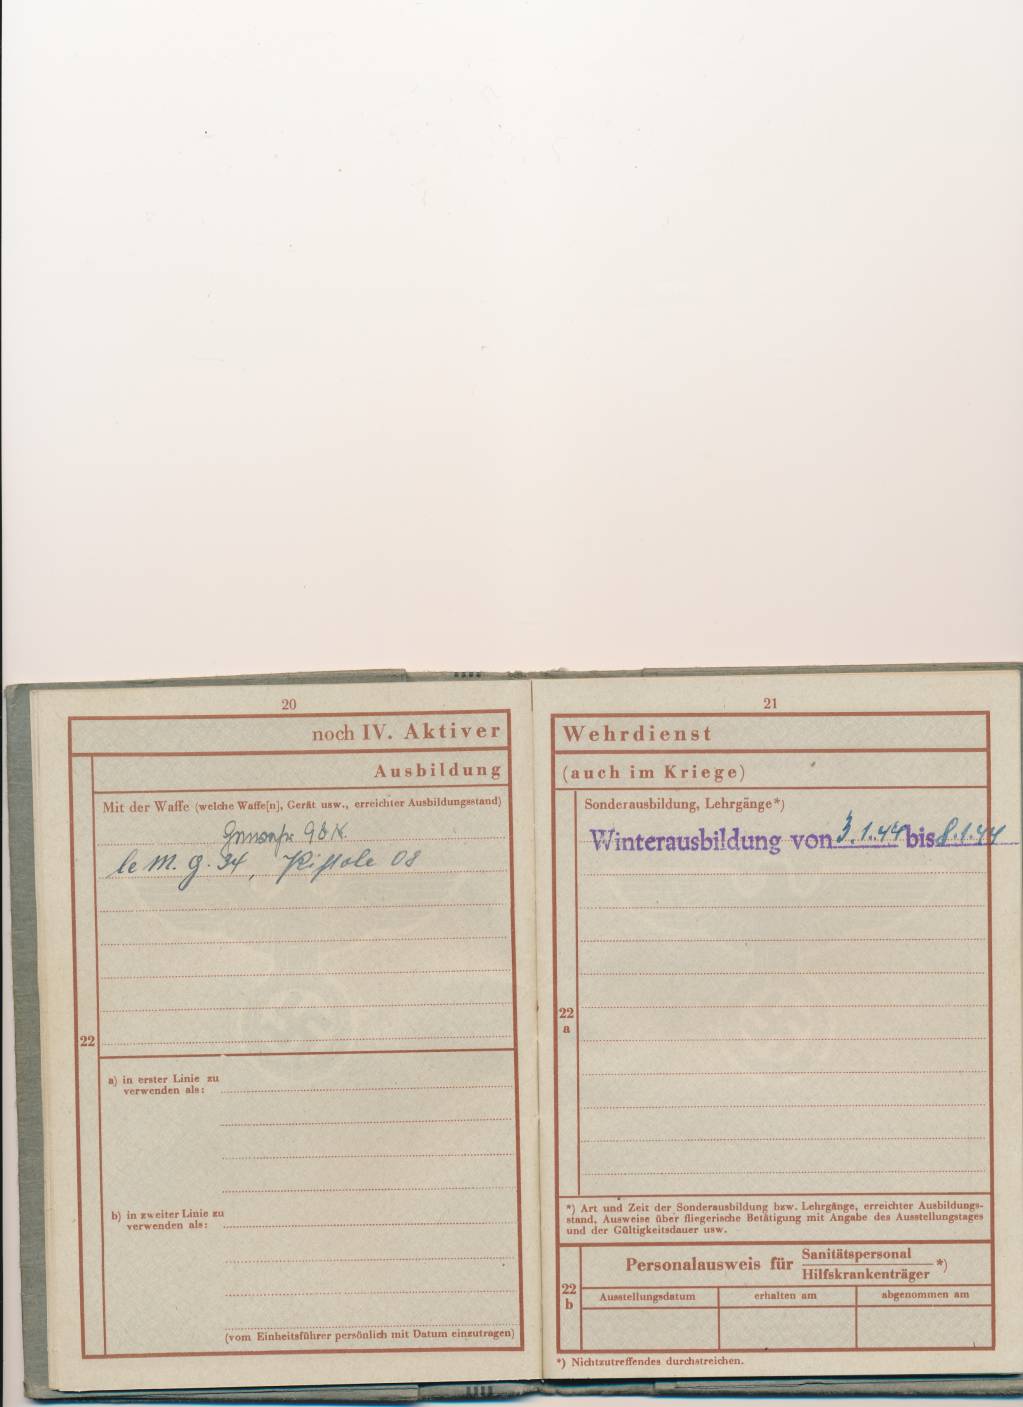 20
noch IV. Aktiver
Ausbildung
Mit der Waffe (welche Waffe[n], Gerät usw., erreichter Ausbildungsstand)
Gewehr 98 K.
le M. G. 34, Pistole 08
22
a) in erster Linie zu
verwenden als:
b) in zweiter Linie zu
verwenden als:
(vom Einheitsführer persönlich mit Datum einzutragen)
21
Wehrdienst
(auch im Kriege)
Sonderausbildung, Lehrgänge*)
Winterausbildung von 3.1.44 bis 8.1.44
22
a
*) Art und Zeit der Sonderausbildung bzw. Lehrgänge, erreichter Ausbildungs-
stand, Ausweise über fliegerische Betätigung mit Angabe des Ausstellungstages
und der Gültigkeitsdauer usw.
22
b
Personalausweis für Sanitätspersonal
Hilfskrankenträger *)
Ausstellungsdatum erhalten am abgenommen am
*) Nichtzutreffendes durchstreichen.